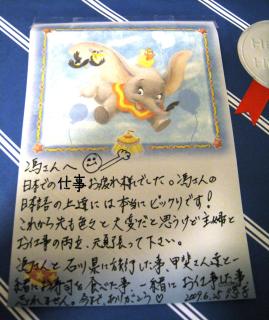 冯さんへ
日本での仕事お疲れ様でした。冯さんの
日本語の上達には本当にビックリです!
これから先も色々と大変だと思うけど主婦と
お仕事の両立、元気に張って下さい。
冯さんと石川県に旅行した事、甲斐さん達と一
緒にお寿司を食べた事、一緒にお仕事した事
忘れません。今まで、ありがとう♡
2009.6.25